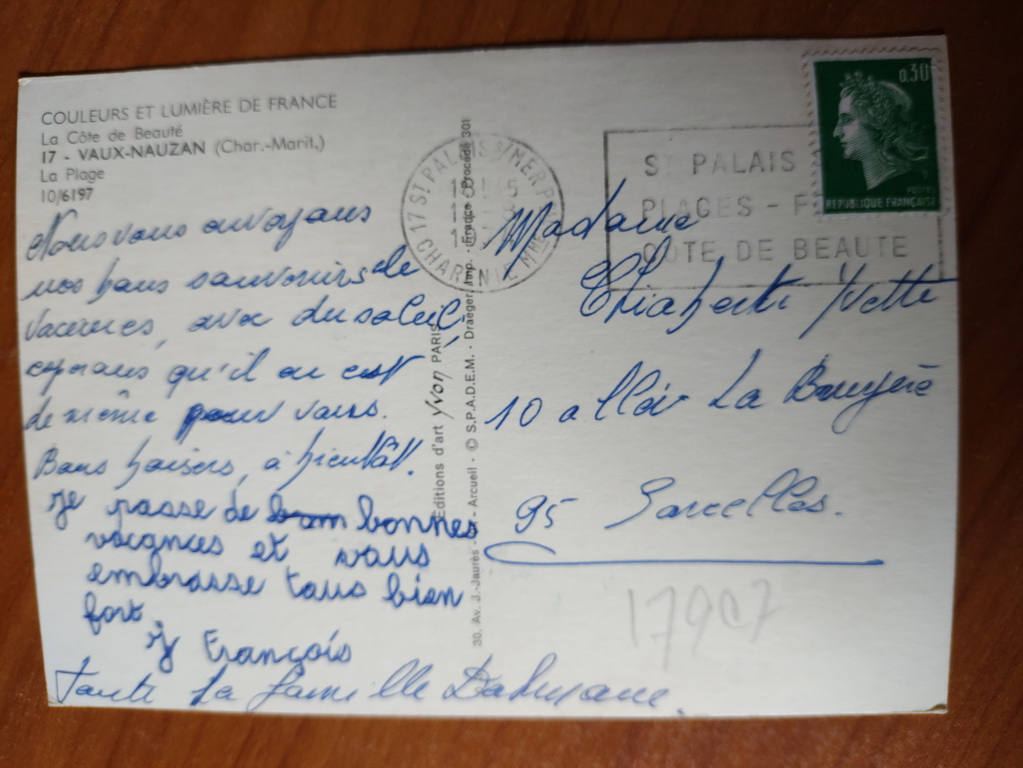 COULEURS ET LUMIÈRE DE FRANCE
La Côte de Beauté
17 - VAUX-NAUZAN (Char.-Marit.)
La Plage
10/6197
Nous vous envoyons
nos bons souvenirs de
vacances, avec du soleil,
esperons qu'il en est
de même pour vous.
Bons baisers, à bientôt.
Je passe de bonnes
vacances et vous
embrasse tous bien
fort.
François
Toute la famille
Editions d'art Yvon PARIS
30, Av. J.-Jaurès - Arcueil - © S.P.A.D.E.M. - Draeger, Imp. - France - Procédé 301
17 ST PALAIS S/MER
CHARENTE MME
ST PALAIS
PLAGES - F
COTE DE BEAUTE
0,30
POSTES
REPUBLIQUE FRANÇAISE
Madame
Yvette
10 allée La Bruyère
95 Sarcelles.
17907